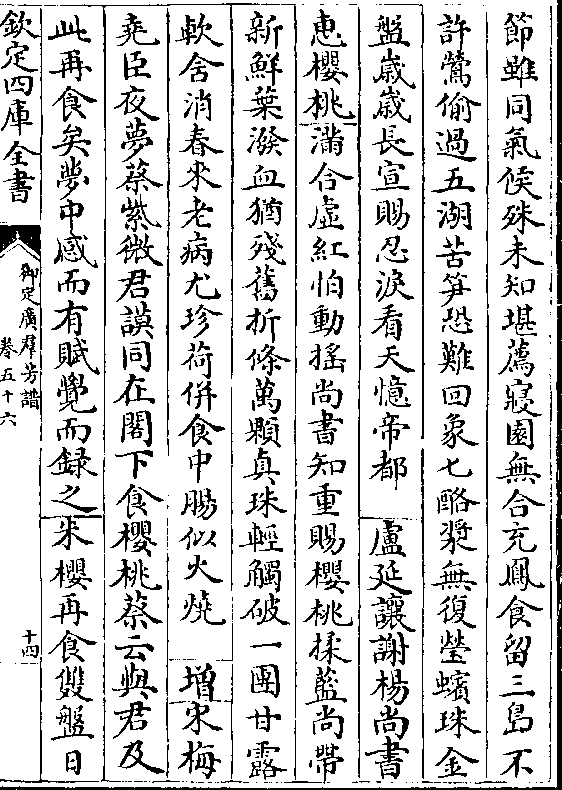 節雖同氣候殊未知堪薦寢園無合充鳳食留三島不
許鶯偷過五湖苦笋恐難回象匕酪漿無復瑩蠙珠金
盤歲歲長宣賜忍淚看天憶帝都　盧延讓謝楊尚書
惠櫻桃滿合虛紅怕動搖尚書知重賜櫻桃揉藍尚帶
新鮮葉潑血猶殘舊折條萬顆真珠輕觸破一團甘露
軟含消春來老病尤珍荷併食中腸似火燒　增宋梅
堯臣夜夢蔡紫微君謨同在閣下食櫻桃蔡云與君及
此再食矣夢中感而有賦覺而録之朱櫻再食雙盤日
欽定四庫全書
御定廣羣芳譜
卷五十六
十四